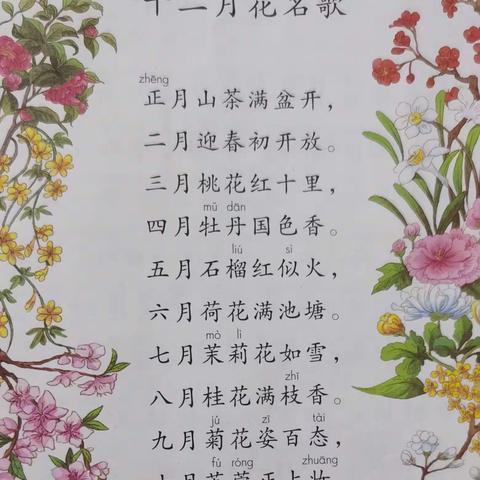 十二月花名歌
zhēng
正月山茶满盆开，
二月迎春初开放。
三月桃花红十里，
mǔ dān
四月牡丹国色香。
liú sì
五月石榴红似火，
六月荷花满池塘。
mò lì
七月茉莉花如雪，
zhī
八月桂花满枝香。
jú zī tài
九月菊花姿百态，
fú róng zhuāng
十月芙蓉正上妆